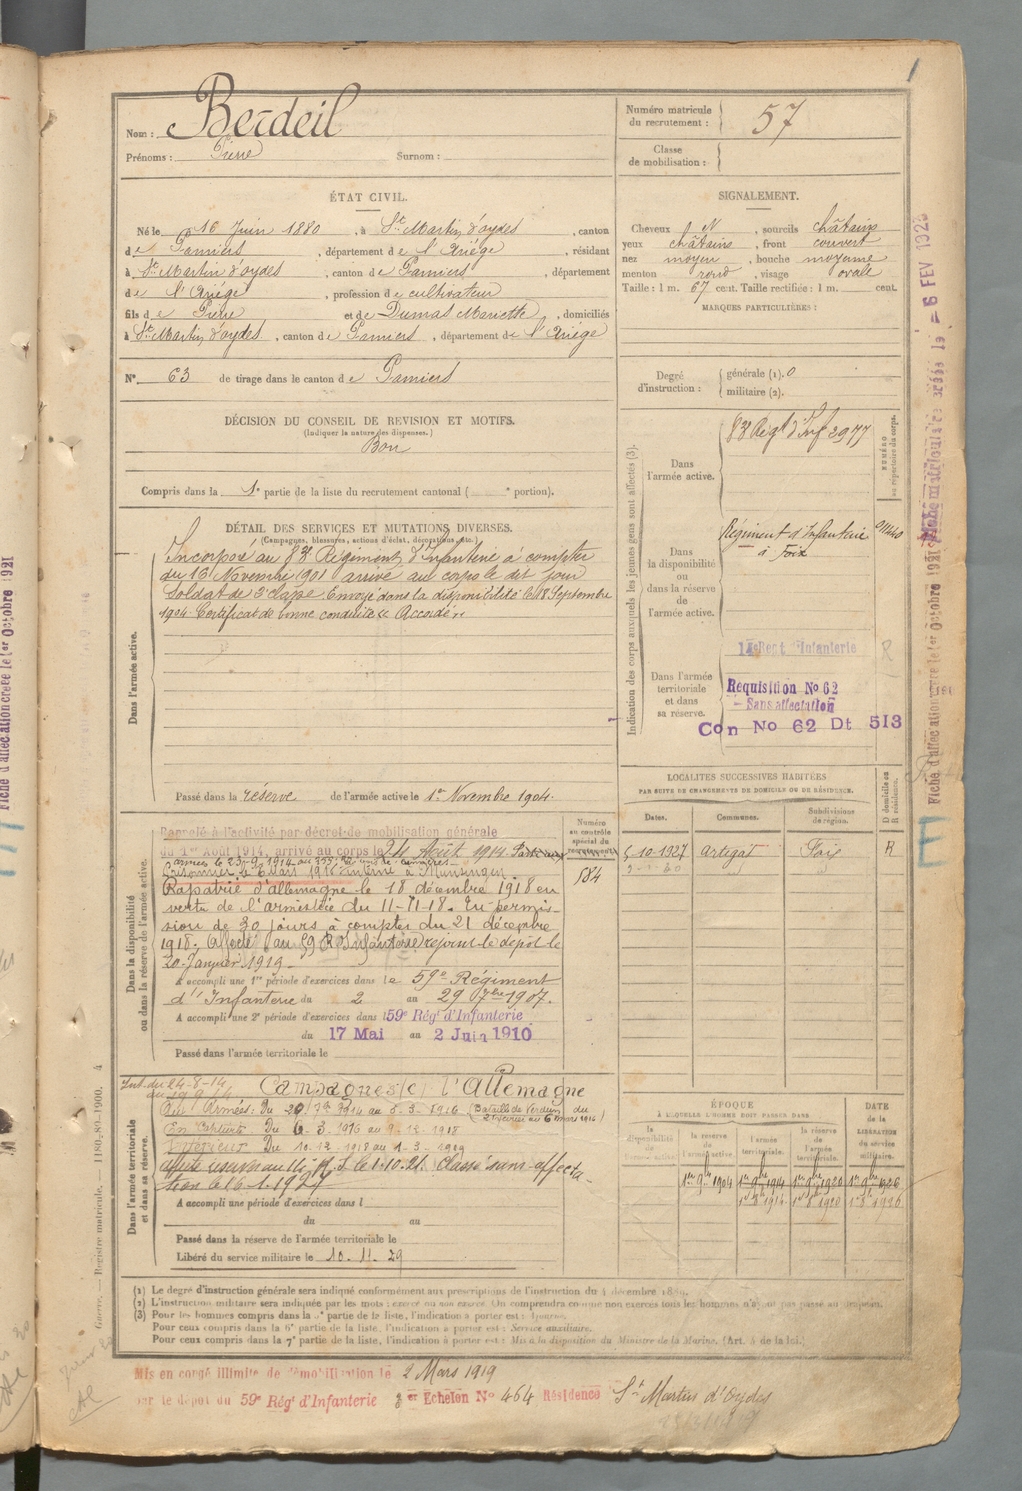 Nom : Berdeil
Prénoms : Pierre Surnom :
Numéro matricule du recrutement : 57
Classe de mobilisation :
ÉTAT CIVIL.
Né le 16 Juin 1880, à St Martin d'oydes, canton
de Pamiers, département de l'Ariége, résidant
à St Martin d'oydes, canton de Pamiers, département
de l'Ariége, profession de cultivateur
fils de Pierre et de Dumas Mariette, domiciliés
à St Martin d'oydes, canton de Pamiers, département de l'Ariége
N° 63 de tirage dans le canton de Pamiers
SIGNALEMENT.
Cheveux N, sourcils châtains
yeux châtains, front couvert
nez moyen, bouche moyenne
menton rond, visage ovale
Taille : 1 m. 67 cent. Taille rectifiée : 1 m. cent.
MARQUES PARTICULIÈRES :
Degré d'instruction : générale (1). 0
militaire (2).
DÉCISION DU CONSEIL DE REVISION ET MOTIFS.
(Indiquer la nature des dispenses.)
Bon
Compris dans la 1e partie de la liste du recrutement cantonal ( e portion).
DÉTAIL DES SERVICES ET MUTATIONS DIVERSES.
(Campagnes, blessures, actions d'éclat, décorations, etc.)
Dans l'armée active.
Incorporé au 83e Régiment d'Infanterie à compter
du 16 Novembre 1901 arrivé au corps le dit jour
Soldat de 2e classe Envoyé dans la disponibilité le 18 Septembre
1904 Certificat de bonne conduite "Accordé"
Passé dans la réserve de l'armée active le 1er Novembre 1904.
Indication des corps auxquels les jeunes gens sont affectés (3).
NUMÉRO au répertoire du corps.
Dans l'armée active.
83 Regt d'Inf 2977
Dans la disponibilité ou dans la réserve de l'armée active.
Régiment d'Infanterie
à Foix
Dans l'armée territoriale et dans sa réserve.
Regt Infanterie R
Requisition No 62
- Sans affectation
Con No 62 Dt 513
LOCALITÉS SUCCESSIVES HABITÉES
PAR SUITE DE CHANGEMENTS DE DOMICILE OU DE RÉSIDENCE.
Dates. Communes. Subdivisions de région. D domicile ou R résidence.
5-10-1927 Artigat Foix R
Dans la disponibilité ou dans la réserve de l'armée active.
Numéro au contrôle spécial du recrutement
584
Rappelé à l'activité par décret de mobilisation générale
du 1er Août 1914, arrivé au corps le 24 Août 1914
Prisonnier le 6 Mars 1916 interné à Munsingen
Rapatrié d'allemagne le 18 décembre 1918 en
vertu de l'armistice du 11-11-18. En permis-
sion de 30 jours à compter du 21 décembre
1918. Affecté au 59 R Infanterie rejoint le depôt le
20 Janvier 1919
A accompli une 1re période d'exercices dans le 59e Régiment
d'Infanterie du 2 au 29 7bre 1907.
A accompli une 2e période d'exercices dans l 59e Régt d'Infanterie
du 17 Mai au 2 Juin 1910
Passé dans l'armée territoriale le
Dans l'armée territoriale et dans sa réserve.
Int. du 24-8-14
au 19 9 14
Campagnes (c) l'Allemagne
Aux Armées. Du 20 7bre 1914 au 5.3.1916 (Bataille de Verdun du
En Capture Du 6.3.1916 au 9.12.1918
Intérieur Du 10.12.1918 au 1.3.1919
Classé sans affecta-
tion le 1.1.1927
A accompli une période d'exercices dans l
du au
Passé dans la réserve de l'armée territoriale le
Libéré du service militaire le 10.11.29
ÉPOQUE
À LAQUELLE L'HOMME DOIT PASSER DANS
la disponibilité de l'armée active. la réserve de l'armée active. l'armée territoriale. la réserve de l'armée territoriale.
DATE de la LIBÉRATION du service militaire.
1er 9bre 1904 1er 9bre 1914 1er 9bre 1920 1er 9bre 1926
(1) Le degré d'instruction générale sera indiqué conformément aux prescriptions de l'instruction du 4 décembre 1889.
(2) L'instruction militaire sera indiquée par les mots : exercé ou non exercé. On comprendra comme non exercés tous les hommes n'ayant pas passé au drapeau.
Pour ceux compris dans la 6e partie de la liste, l'indication à porter est : Service auxiliaire.
Pour ceux compris dans la 7e partie de la liste, l'indication à porter est : Mis à la disposition du Ministre de la Marine. (Art. 4 de la loi.)
Mis en congé illimité de démobilisation le 2 Mars 1919
par le dépôt du 59e Régt d'Infanterie Echelon No 464 Résidence St Martin d'Oydes
Fiche d'affectation créée le 1er Octobre 1921
6 FEV 1923
Guerre. — Registre matricule. — 1180-89-1900. 4